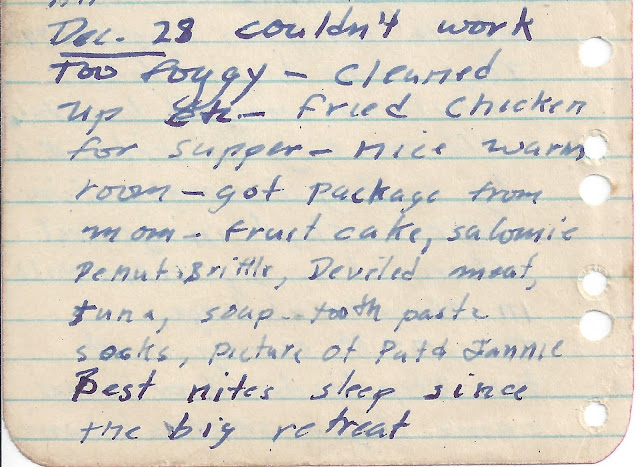 Dec. 28 couldn't work
Too foggy - Cleaned
up - Fried Chicken
for supper - nice warm
room - got package from
mom - fruit cake, salomie
Penut Brittle, Deviled meat,
tuna, soup - tooth paste
socks, picture of Pat & Jannie
Best nites sleep since
the big retreat